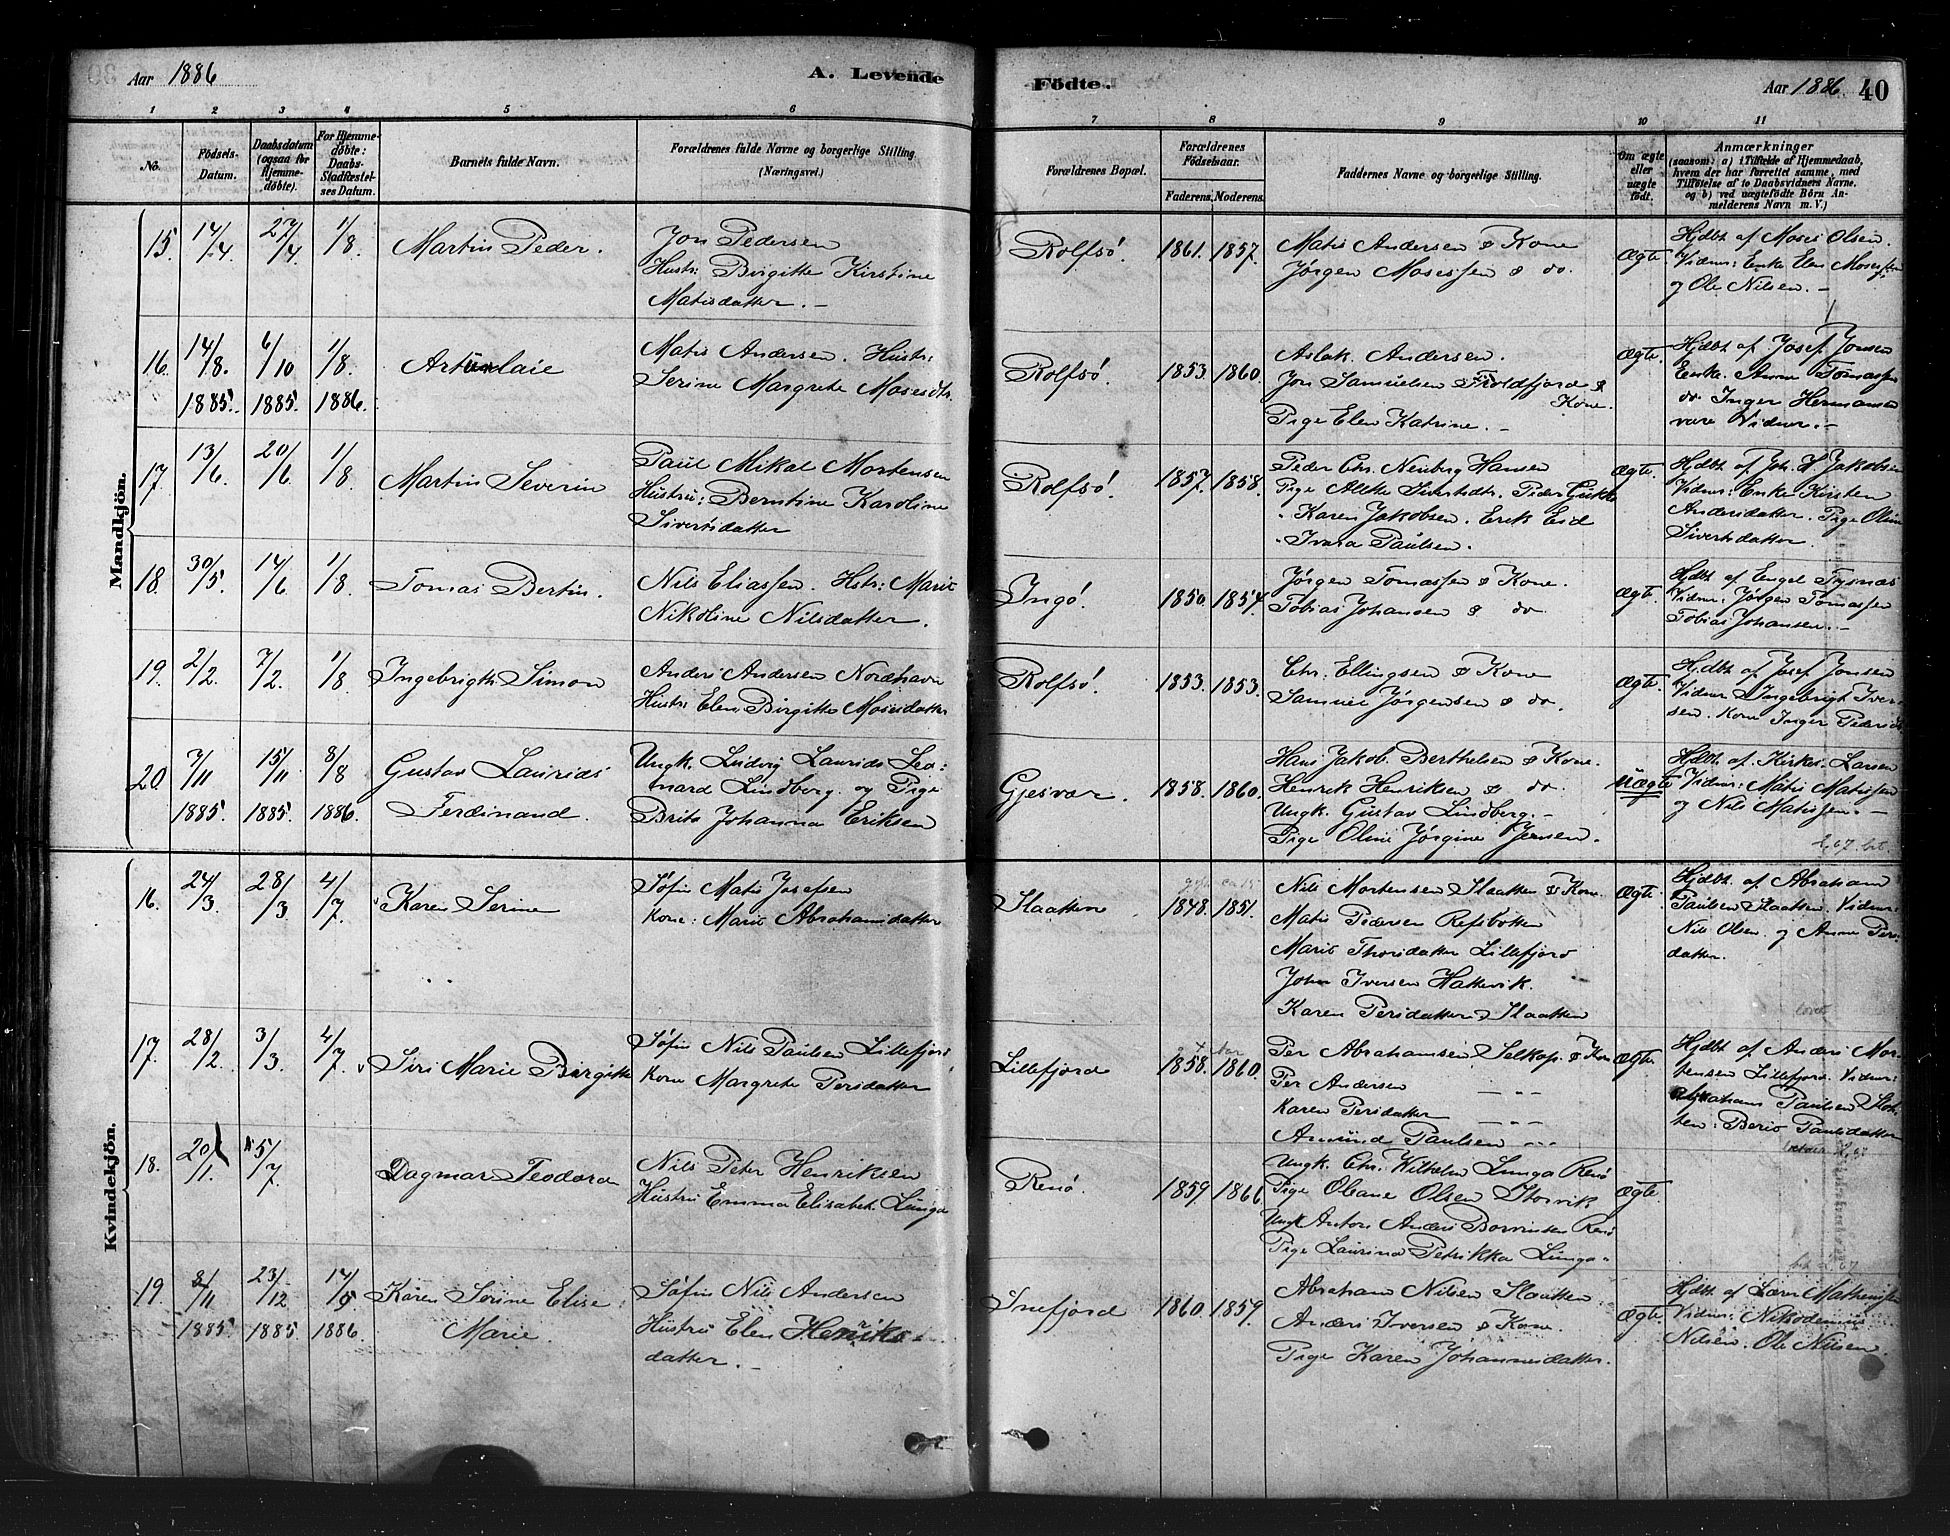 Aar 1886
A. Levende
Födte.
Aar 1886
40
1 2 3 4 5 6 7 8 9 10 11
No.
Födsels-Datum.
Daabsdatum (ogsaa for Hjemme-døbte).
For Hjemme-døbte: Daabs-Stadfæstelses Datum.
Barnets fulde Navn.
Forældrenes fulde Navne og borgerlige Stilling (Næringsvei.)
Forældrenes Bopæl.
Forældrenes Födselsaar.
Faderens. Moderens.
Faddernes Navne og borgerlige Stilling.
Om ægte eller uægte født.
Anmærkninger
(saasom: a) i Tilfælde af Hjemmedaab, hvem der har forrettet samme, med Tilføielse af to Daabsvidners Navne, og b) ved uægtefødte Børn Anmelderens Navn m. V.)
Mandkjön.
15. 14/24 27/4 1/8 Martin Peder.
Jon Pedersen
Hustr: Birgitte Kirstine
Matisdatter. –
Rolfsö. 1861. 1857.
Matis Andersen & Kone
Jørgen Mosessen & do.
Ægte.
Hjdbt af Moses Olsen.
Vidner: Enke Elen Mosessen
og Ole Nilsen. –
16. 14/8. 6/10 1/8.
1885. 1885. 1886.
Matis Andersen. Hustr:
Serine Margrete Mosesdtr.
Rolfsö. 1853. 1860.
Aslak Andersen.
Jon Samuelsen Troldfjord &
Kone.
Pige Elen Katrine. –
Ægte.
Hjdbt. af Josef Jonsen
Enke. Anne Tomassen
do Inger Hermansen
vare Vidner. –
17. 13/6. 20/6 1/8 Martin Severin
Paul Mikal Mortensen
Hustru: Berntine Karoline
Sivertsdatter
Rolfsö. 1857. 1858.
Peder Chr. Nenberg Hansen
Pige Aletke Sivertsdtr. Peder
" Karen Jakobsen. Erik Eid
" Ivara Paulsen.
Ægte.
Hjdbt af Joh. H Jakobsen
Vidner: Enke Kirsten
Andersdatter. Pige Oline
Sivertsdatter.
18. 30/5 14/6 1/8 Tomas Bertin.
Nils Eliassen. Hstr: Marie
Nikoline Nilsdatter.
Ingö. 1850. 1854.
Jørgen Tomassen & Kone.
Tobias Johansen & do.
Ægte.
Hjdbt af Engel Tysnæs
Vidner: Jørgen Tomassen
Tobias Johansen. –
19. 2/2. 7/2. 1/8. Ingebrigth Simon
Anders Andersen Nordhavn
Hustr: Elen Birgitte Mosesdatter
Rolfsö. 1853. 1853.
Chr. Ellingsen & Kone
Samuel Jørgensen & do.
Ægte.
Hjdbt af Josef Jonsen
Vidner Ingebrigt Iver
sen. Kone Inger Pedersdt
20 7/11 15/11 8/8
1885. 1885. 1886.
Gustav Laurids
Ferdinand.
Ungk. Ludvig Laurids Leo:
nard Lindberg. og Pige
Brite Johanna Eriksen
Gjesvær. 1858. 1860.
Hans Jakob Berthelsen & Kone.
Henrik Henriksen & do.
Ungk. Gustav Lindberg. –
Pige Oline Jørgine Jensen.
Uægte
Hjdbt af Kirkes. Larsen
Vidner: Matis Matissen
og Nils Matissen. –
Kvindekjön.
16. 24/3 28/3 4/7. Karen Serine
Søfin Matis Josefsen
Kone: Marie Abrahamsdatter
Slaatten 1848. 1851.
Nils Mortensen Slaatten & Kone.
Matis Pedersen Refsbotten
Marit Thorsdatter Lillefjord
John Iversen Hattevik.
Karen Persdatter Slaatten
Ægte.
Hjdbt. af Abraham
Paulsen Slaatten. Vidner:
Nils Olsen. og Anne Pers
datter.
17. 28/2. 3/3. 4/7. Siri Marie Birgitte
Søfin Nils Paulsen Lillefjord
Kone Margrete Persdatter
Lillefjord 1858. 1860.
Per Abrahamsen Selkop. & Kone
Per Andersen
Karen Persdatter
Amund Paulsen
Ægte
Hjdbt af Anders Mor-
tensen Lillefjord. Vidner:
Abrahams Paulsen Slot-
ten: Berit Paulsdatter
18. 20/1. 5/7. Dagmar Teodora
Nils Peter Henriksen
Hustru Emma Elisabet. Lunga
Renö. 1859. 1866.
Ungk. Chr. Vilhelm Lunga Renö
Pige Oleane Olsen Storvik
Ungk Anton Anders Renö
Pige Laurina Petrikka Lunga
Ægte.
19. 8/11 23/12 17/9
1885. 1885 1886
Karen Serine Elise
Marie.
Søfin Nils Andersen
Hustru Elen Henriks-
datter. –
Snefjord 1860. 1859.
Abraham Nilsen Slaatten
Anders Iversen & Kone.
Pige Karen Johannesdatter.
Ægte.
Hjdbt af Lærer Mathisen
Vidner: Nikodemus
Nilsen. Ole Nilsen.